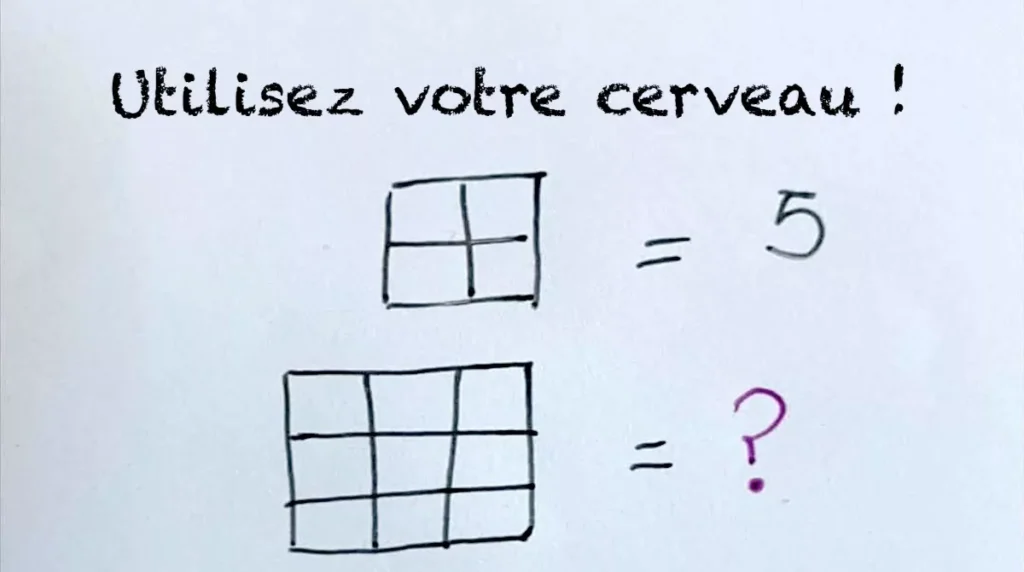 Utilisez votre cerveau !
= 5
= ?